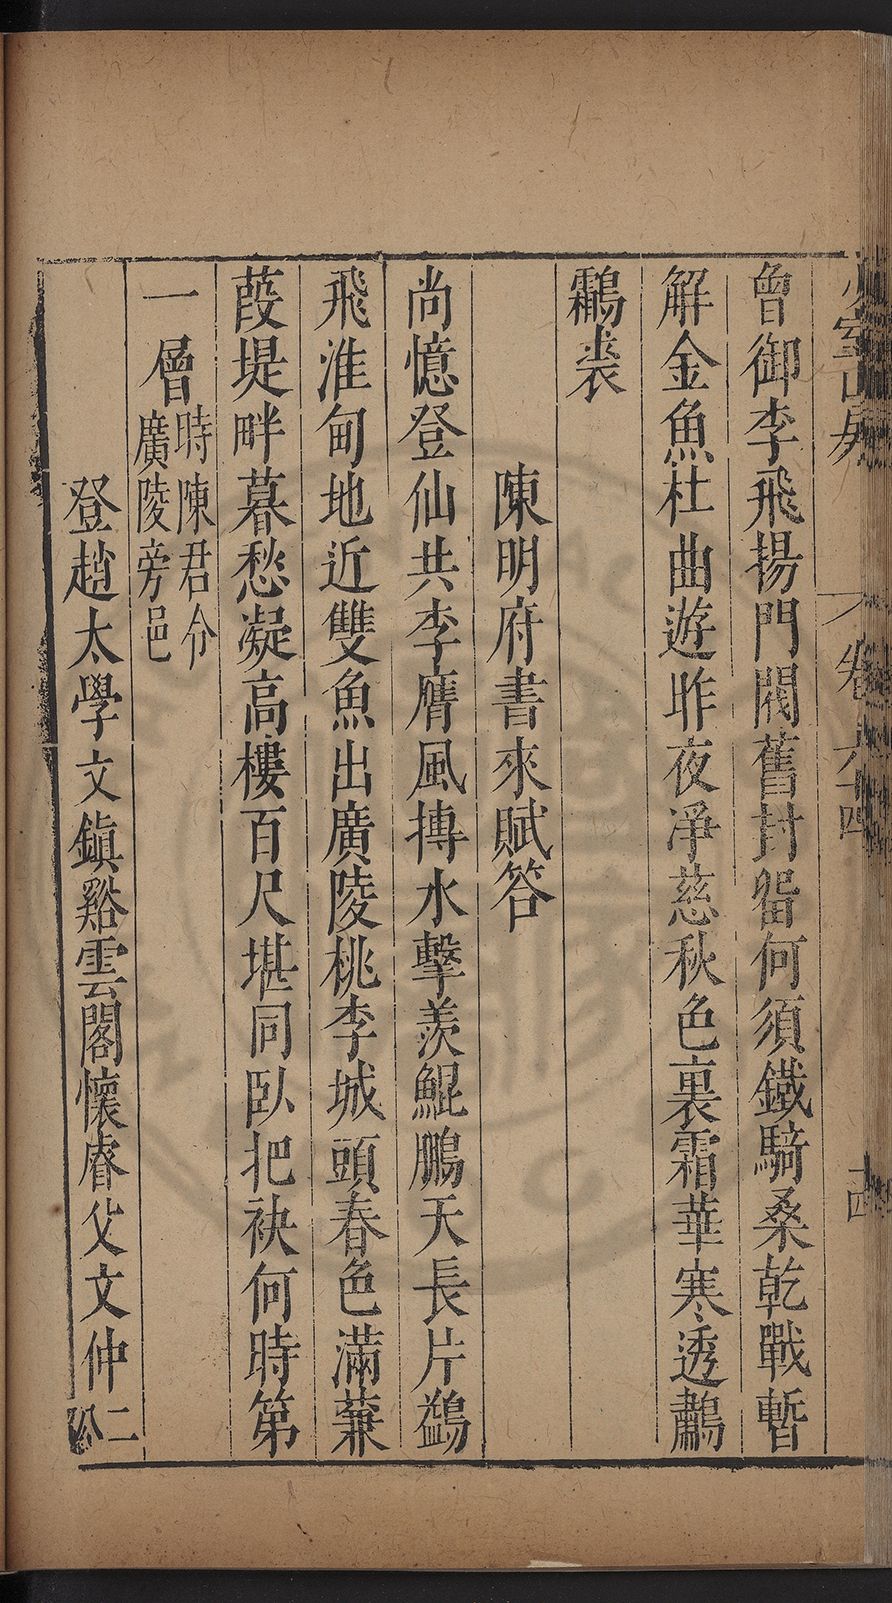 少室山房
卷六十四
十四
曾御李飛揚門閥舊封畱何須鐵騎桑乾戰暫
解金魚杜曲遊昨夜凈慈秋色裏霜華寒透鷫
鸘裘
陳明府書來賦答
尚憶登仙共李膺風摶水擊羨鯤鵬天長片鷁
飛淮甸地近雙魚出廣陵桃李城頭春色滿蒹
葭堤畔暮愁凝高樓百尺堪同臥把袂何時第
一層時陳君令
廣陵旁邑
登趙太學文鎮谿雲閣懷睿父文仲二
公